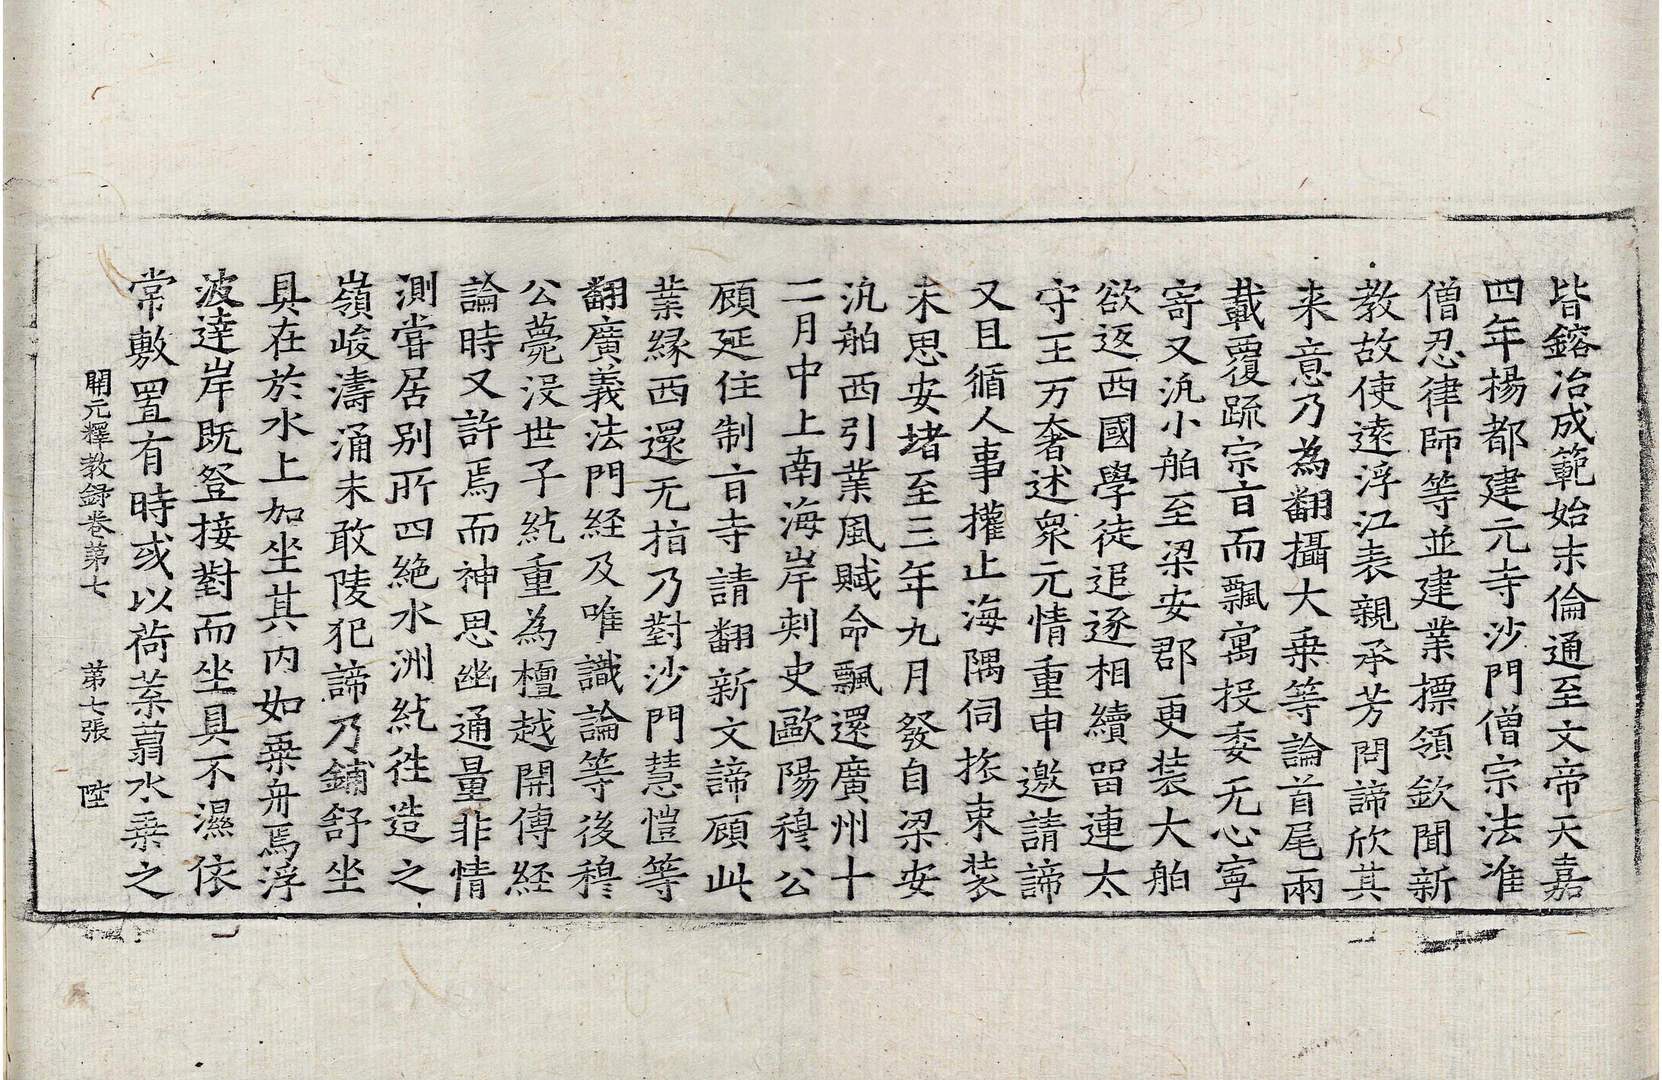 皆鎔冶成範始末倫通至文帝天嘉
四年揚都建元寺沙門僧宗法准
僧忍律師等並建業摽領欽聞新
教故使遠浮江表親承芳問諦欣其
来意乃為翻攝大乗等論首尾兩
載覆䟽宗㫖而飄寓投委无心寧
寄又汎小舶至梁安郡更装大舶
欲返西國學徒追逐相續留連太
守王万奢述衆元情重申邀請諦
又且循人事權止海隅伺旅束装
未思安堵至三年九月發自梁安
汎舶西引業風賦命飄還廣州十
二月中上南海岸刾史歐陽穆公
顧延住制㫖寺請翻新文諦顧此
業縁西還无指乃對沙門慧愷等
翻廣義法門経及唯識論等後穆
公薨没世子紇重為檀越開傳経
論時又許焉而神思幽通量非情
測嘗居别所四絶水洲紇徃造之
嶺峻濤涌未敢陵犯諦乃鋪舒坐
具在於水上加坐其内如乗舟焉浮
波達岸既登接對而坐具不濕依
常敷置有時或以荷葉蓊水乗之
開元釋教録卷第七 第七張 陞